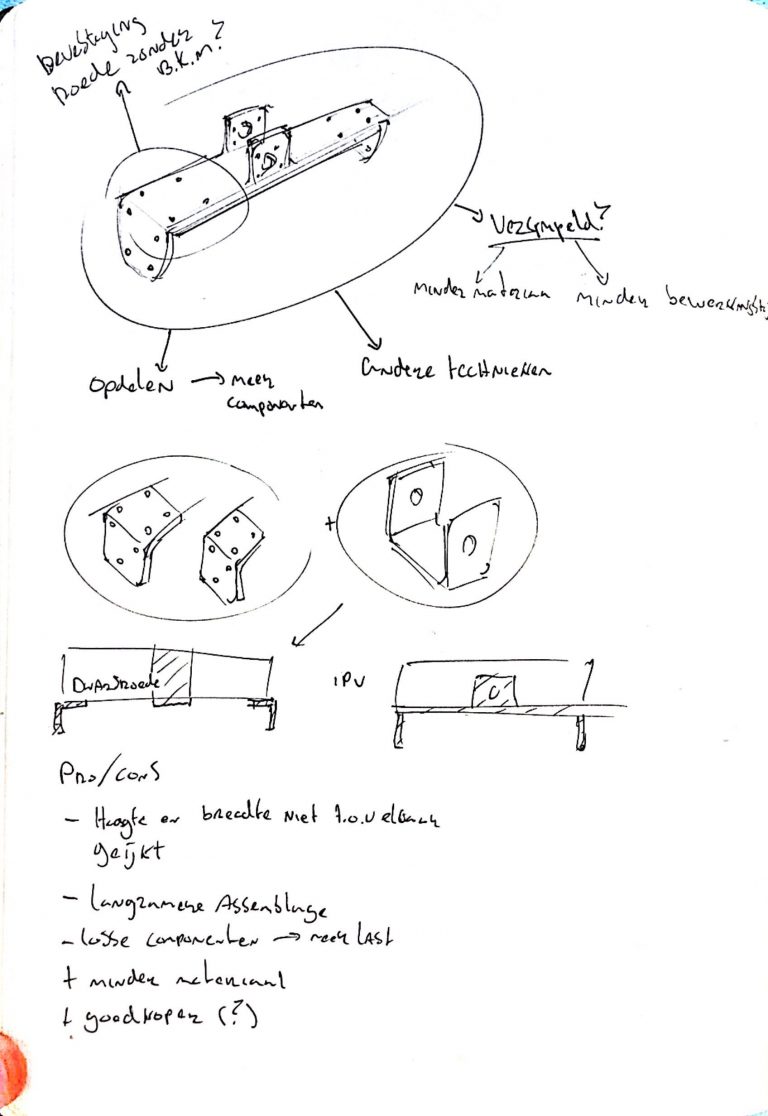 bevestiging
roede zonder
B.K.M?
Versimpeld?
minder materiaal
minder bewerkingstij
andere technieken
Opdelen → meer
componenten
+
Dwarsroede
ipv
Pro/cons
- Hoogte en breedte niet t.o.v elkaar
geijkt
- langzamere Assemblage
- losse componenten → meer last
+ minder materiaal
+ goedkoper (?)